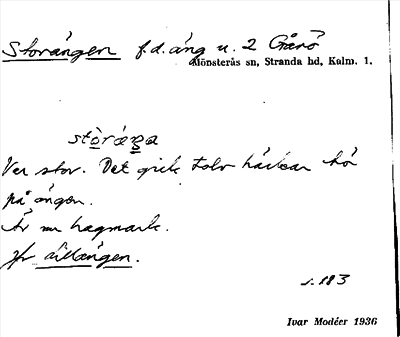 Storängen f.d. äng u. 2 Gårö
Mönsterås sn, Stranda hd, Kalm. l.
Var stor. Det gick tolv hässar hö
på ängen.
Är nu hagmark.
Jfr Lillängen.
s. 183
Ivar Modéer 1936